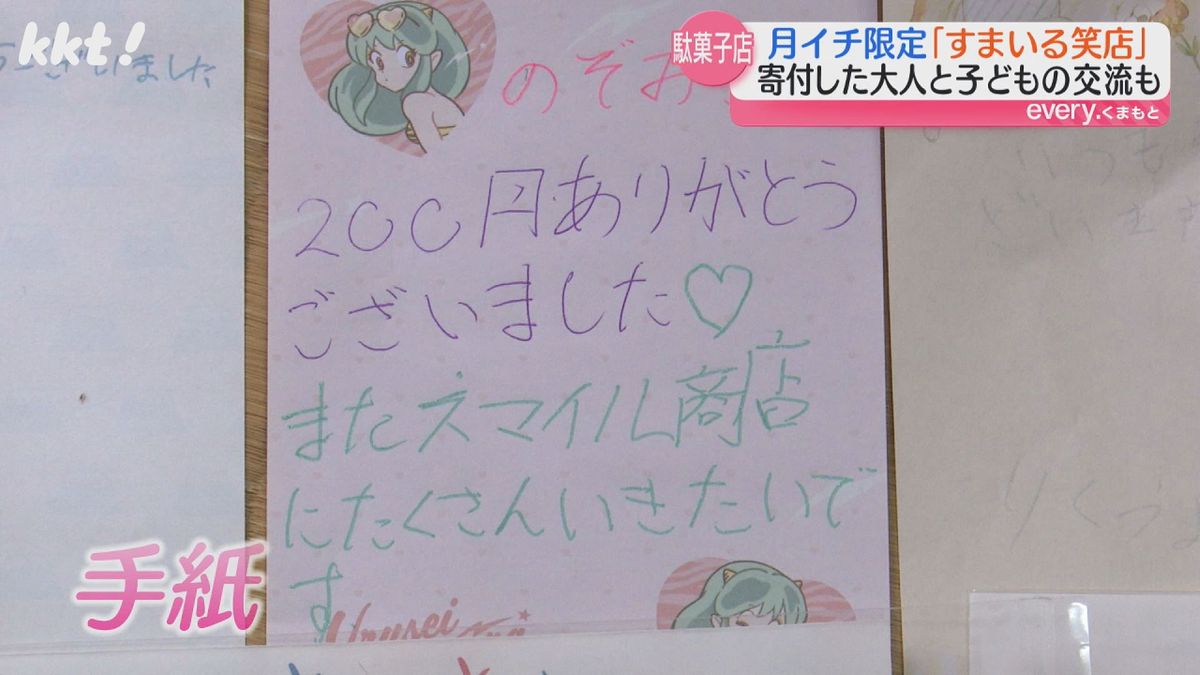 kkt!
駄菓子店
月イチ限定「すまいる笑店」
寄付した大人と子どもの交流も
every.くまもと
ございました
のぞお
200円ありがとう
ございました♡
またスマイル商店
にたくさんいきたいで
す
Urusei
手紙